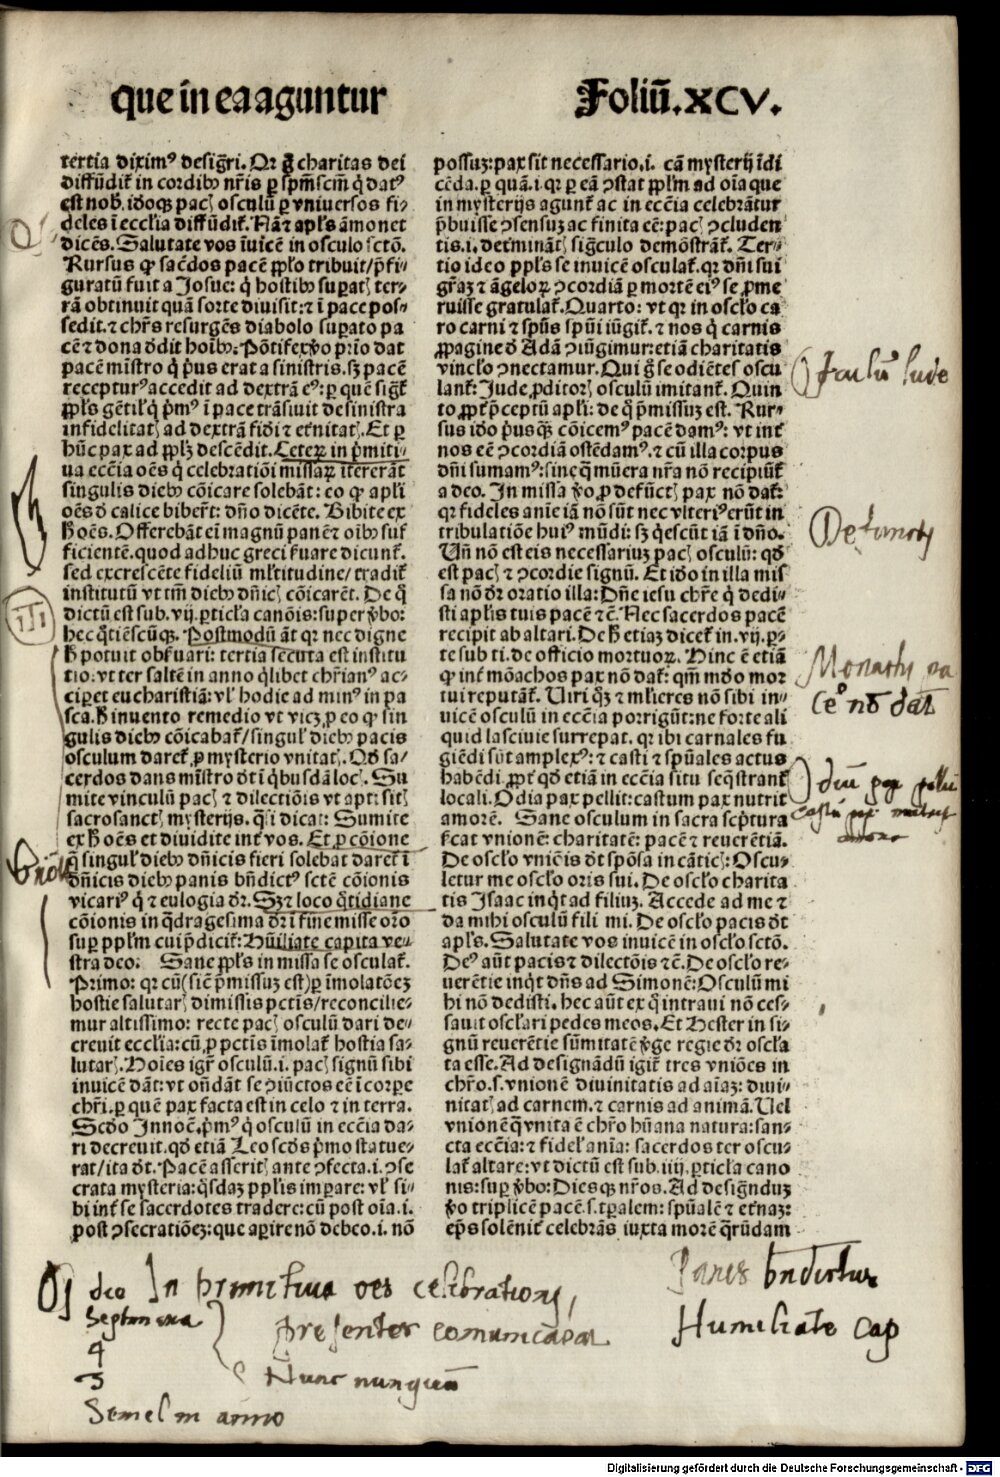 que in ea aguntur
Foliū. XCV.
tertia diximꝰ designari. Qr charitas dei
diffūdit᷑ in cordibꝰ nr̄is ꝑ spm̄ scm̄ q̇ datꝰ
est nob̄. idoqꝫ pacꝭ osculū ꝑ vniuersos fi⸗
deles ī eccl̄ia diffūdit᷑. Nā ⁊ apl̄s āmonet
dicēs. Salutate vos īuicē in osculo sctō.
Rursus ꝙ sac̄dos pacē pp̄lo tribuit/ p̄fi⸗
guratū fuit a Josue: q̇ hostibꝰ suꝑatꝭ ter⸗
rā obtinuit quā sorte diuisit: ⁊ ī pace pos⸗
sedit. ⁊ chr̄s resurgēs diabolo suꝑato pa
cē ⁊ dona ddit hoībꝰ. Pōtifex ꝟo pͥmo dat
pacē mīstro q̇ pꝰus erat a sinistris. sꝫ pacē
recepturꝰ accedit ad dextrā eꝰ: ꝑ quē sigᷓt᷑
pp̄ls gētil̓ q̇ pͥmꝰ ī pace trāsiuit de sinistra
infidelitatꝭ ad dextrā fidei ⁊ et̓nitatꝭ. Et ꝑ
hūc pax ad pp̄lꝫ descēdit. Ceteꝝ in pͥmiti⸗
ua eccīa oēs q̇ celebratiōi missaꝝ īterer̄āt
singulis diebꝰ cōicare solebāt: eo ꝙ apl̄i
oēs d̄ calice biber̄t: dn̄o dicēte. Bibite ex
h̄ oēs. Offerebāt eī magnū panē ⁊ oībꝰ suf
ficientē. quod adhuc greci ẜuare dicunt᷑.
sed excrescēte fideliū ml̄titudine/ tradit᷑
institutū vt tm̄ diebꝰ dn̄icꝭ cōicarēt. De q̇
dictū est sub. vij. ꝑticl̓a canōis: super ꝟbo:
hec q̇tiēscūqꝫ. Postmodū āt qr nec digne
h̄ potuit obẜuari: tertia secuta est institu
tio: vt ter saltē in anno q̇libet chr̄ianꝰ ac⸗
ciperet eucharistiā: vl̓ hodie ad minꝰ in pa
sca. h̄ inuento remedio vt vicꝫ ꝓ eo ꝙ sin
gulis diebꝰ cōicabat᷑/ singul̓ diebꝰ pacis
osculum daret᷑ ꝓ mysterio vnitatꝭ. Qd̄ sa⸗
cerdos dans mīstro dt̄ ī q̇busdā locꝭ. Su
mite vinculū pacꝭ ⁊ dilectiōis vt apti sitꝭ
sacrosanctꝭ mysterijs. q̇si dicat: Sumite
ex h̄ oēs et diuidite int̓ vos. Et ꝓ cōione
q̄ singul̓ diebꝰ dn̄icis fieri solebat daret᷑ ī
dn̄icis diebꝰ panis bn̄dictꝰ sctē cōionis
vicariꝰ q̇ ⁊ eulogia dr̄. Sꝫ ⁊ loco q̇tidiane
cōionis in q̇dragesima dr̄ ī fine misse orō
suꝑ pplm̄ cui p̄dicit᷑: Hūiliate capita ve⸗
stra deo. Sane pp̄ls in missa se osculat᷑.
Primo: qr cū (sic̄ p̄missuꝫ est) ꝑ īmolatōeꝫ
hostie salutarꝭ dimissis pctīs/ reconcilie⸗
mur altissimo: recte pacꝭ osculū dari de⸗
creuit eccl̄ia: cū ꝓ pctīs īmolat᷑ hostia sa⸗
lutarꝭ. Hoīes igr̄ osculū. i. pacꝭ signū sibi
inuicē dāt: vt on̄dāt se ꝯiūctos eē ī corpe
chr̄i. ꝑ quē pax facta est in celo ⁊ in terra.
Scd̄o Innocē. pͥmꝰ q̇ osculū in eccīa da⸗
ri decreuit. qd̄ etiā Leo scd̄s pͥmo statue⸗
rat/ ita dt̄. Pacē asseritꝭ ante ꝯfecta. i. ꝯse
crata mysteria: q̇sdaꝫ pplis imꝑare: vl̓ si⸗
bi int̓ se sacerdotes tradere: cū post oīa. i.
post ꝯsecratiōeꝫ: que aꝑire nō debeo. i. nō
possuꝫ: pax sit necessario. i. cā mysterij īdi
cēda. ꝑ quā. i. qr ꝑ eā ꝯstat pplm̄ ad oīa que
in mysterijs agunt᷑ ac in eccīa celebrātur
p̄buisse ꝯsensuꝫ ac finita eē: pacꝭ ꝯcluden
tis. i. det̓minātꝭ sigᷓculo demōstrāt᷑. Ter⸗
tio ideo ppl̄s se inuicē osculat᷑. qr dn̄i sui
grāꝫ ⁊ āgeloꝝ ꝯcordiā ꝑ mortē eiꝰ se ꝓme
ruisse gratulat᷑. Quarto: vt qr in oscl̓o ca
ro carni ⁊ spūs spūi iūgit᷑. ⁊ nos q̇ carnis
ꝓpagine d̄ Adā ꝯiūgimur: etiā charitatis
vincl̓o ꝯnectamur. Qui ḡ se odiētes oscu
lant᷑: Jude ꝓditorꝭ osculū imitant᷑. Quin
to ꝓpt̓ p̄ceptū apl̄i: de q̇ p̄missuꝫ est. Rur⸗
sus ido pꝰus qꝫ cōicemꝰ pacē damꝰ: vt int̓
nos eē ꝯcordiā ostēdamꝰ. ⁊ cū illa corpus
dn̄i sumamꝰ: sine q̄ mūera nr̄a nō recipiūt᷑
a deo. In missa ꝟo ꝓ defūctꝭ pax nō dat᷑:
qr fideles anīe iā nō sūt nec vlteriꝰ erūt in
tribulatiōe huiꝰ mūdi: sꝫ q̇escūt iā ī dn̄o.
Un̄ nō est eis necessariuꝫ pacꝭ osculū: qd̄
est pacꝭ ⁊ ꝯcordie signū. Et ido in illa mis
sa nō dr̄ oratio illa: Dn̄e iesu chr̄e q̇ dedi⸗
sti apl̄is tuis pacē ⁊c̄. Nec sacerdos pacē
recipit ab altari. De h̄ etiaꝫ dicet᷑ in. vij. ꝑ⸗
te sub ti. de officio mortuoꝝ. Hinc ē etiā
ꝙ int̓ mōachos pax nō dat᷑: qm̄ mūdo mor
tui reputāt᷑. Uiri qͦꝫ ⁊ ml̓ieres nō sibi in⸗
uicē osculū in eccīa porrigūt: ne forte ali
quid lasciuie surrepat. qr ibi carnales fu
giēdi sūt amplexꝰ: ⁊ casti ⁊ spūales actus
habēdi. ꝓpt̓ qd̄ etiā in eccīa situ seq̇strant᷑
locali. Odia pax pellit: castum pax nutrit
amorē. Sane osculum in sacra scp̄tura
ẜcat vnionē: charitatē: pacē ⁊ reuerētiā.
De oscl̓o vniōis dt̄ spōsa in cāticꝭ: Oscu⸗
letur me oscl̓o oris sui. De oscl̓o charita
tis Isaac inq̇t ad filiuꝫ. Accede ad me ⁊
da mihi osculū fili mi. De oscl̓o pacis dt̄
apl̄s. Salutate vos inuicē in oscl̓o sctō.
Deꝰ aūt pacis ⁊ dilectōis ⁊c̄. De oscl̓o re⸗
uerētie inq̇t dn̄s ad Simonē: Osculū mi
hi nō dedisti. hec aūt ex q̇ intraui nō ces⸗
sauit oscl̓ari pedes meos. Et Hester in si⸗
gnū reuerētie sūmitatē ꝟge regie dr̄ oscl̓a
ta esse. Ad designādū igit᷑ tres vniōes in
chr̄o. s. vnionē diuinitatis ad aīaꝫ: diui⸗
nitatꝭ ad carnem. ⁊ carnis ad animā. Uel
vnionē q̄ vnita ē chr̄o hūana natura: san⸗
cta eccīa: ⁊ fidel̓ anīa: sacerdos ter oscu⸗
lat᷑ altare: vt dictū est sub. iiij. ꝑticl̓a cano
nis: suꝑ ꝟbo: Diesqꝫ nr̄os. Ad designduꝫ
ꝟo triplicē pacē. s. tꝑalem: spūalē ⁊ et̓naꝫ:
ep̄s solēnit̓ celebrās iuxta morē q̇rūdam
III
Defunctis
In primitiua oēs celebrationi
presentes comunicabāt
Nunc nunquam
4
3
Semel in anno
Panis bn̄dictus
Humiliate cap
Digitalisierung gefördert durch die Deutsche Forschungsgemeinschaft - DFG